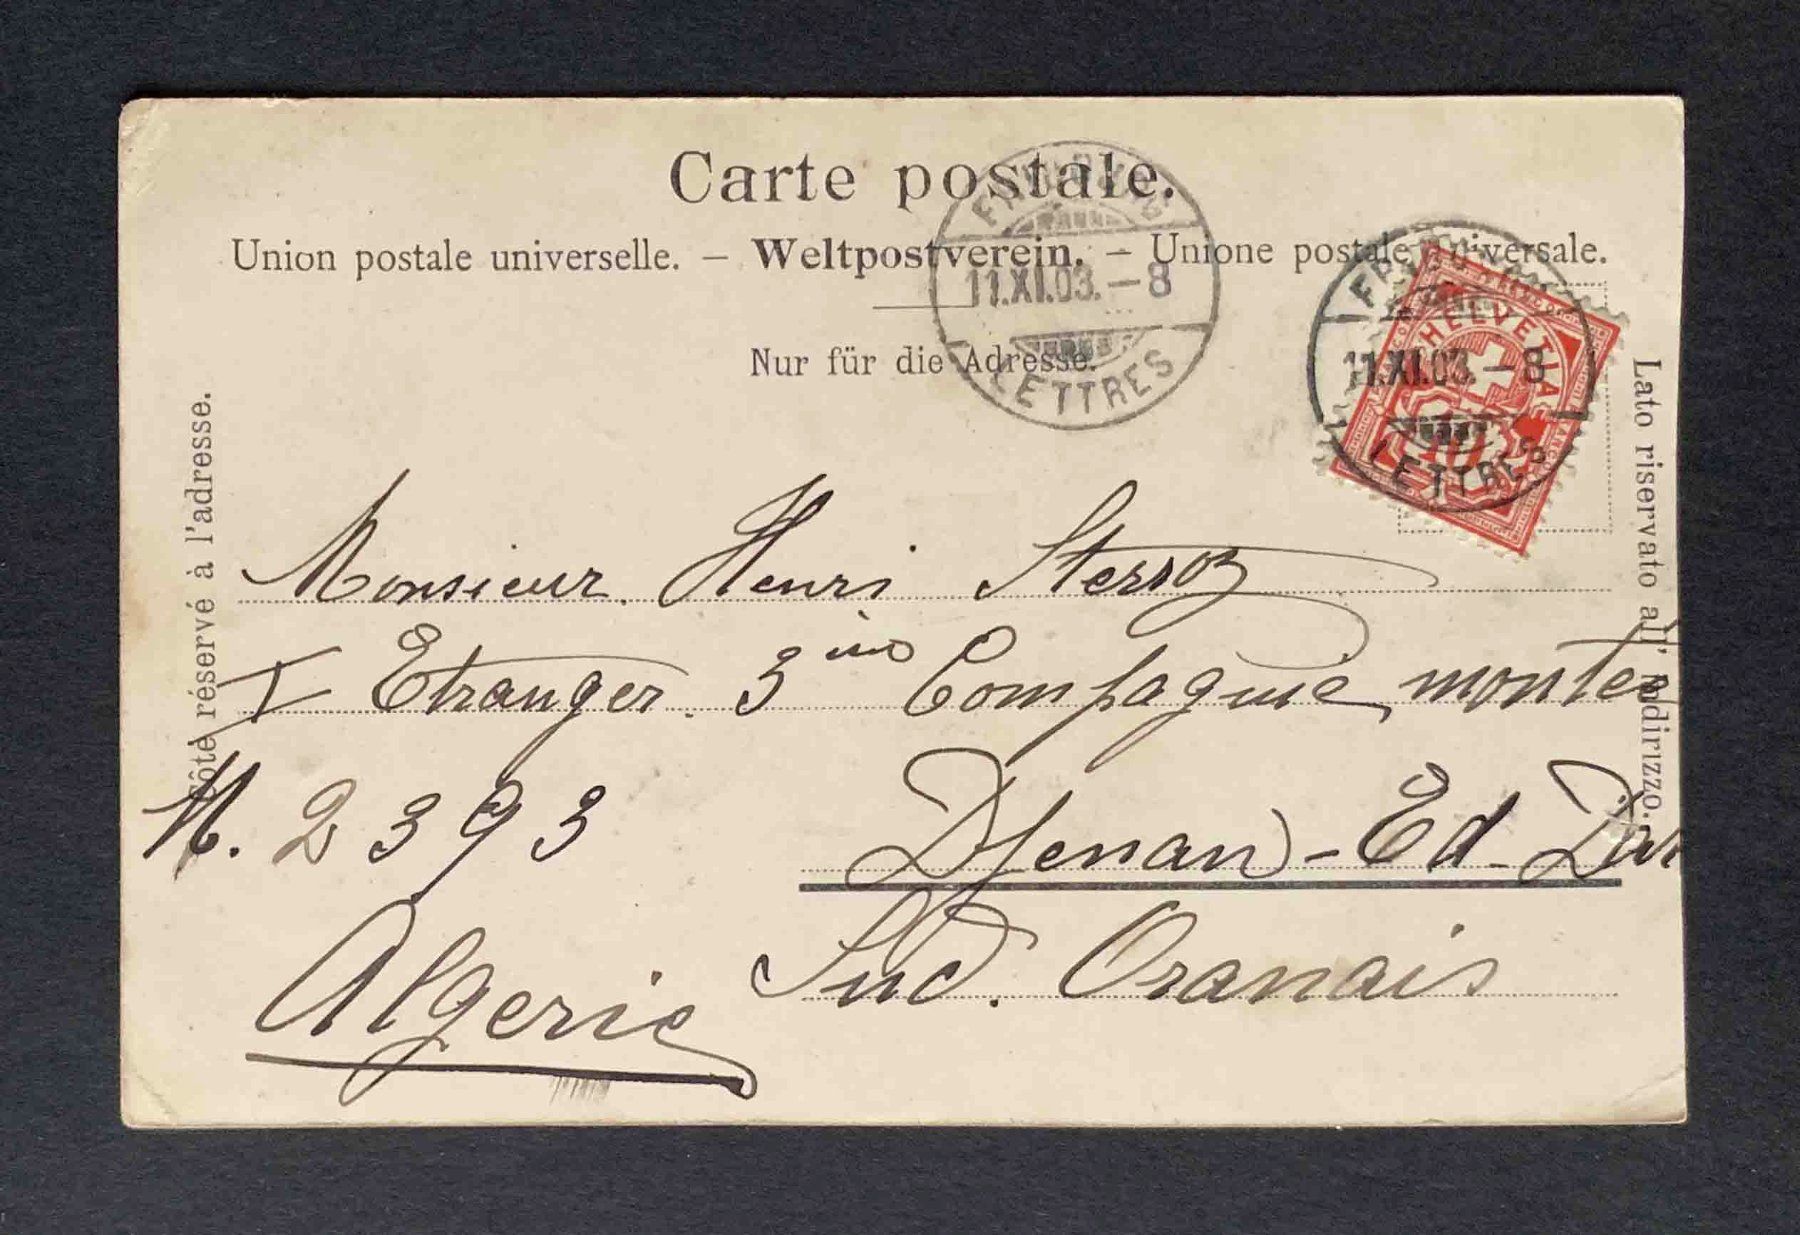 Carte postale.
Union postale universelle. – Weltpostverein. – Unione postale universale.
Nur für die Adresse.
Côté réservé à l'adresse.
Lato riservato all' indirizzo.
11.XI.03.–8
LETTRES
11.XI.03.–8
LETTRES
HELVETIA
FRANCO
10
Monsieur Henri Sterroz
I Etranger. 3ème Compagnie montée
M. 2393 Djenan-Ed-Dar
Algerie Sud. Oranais